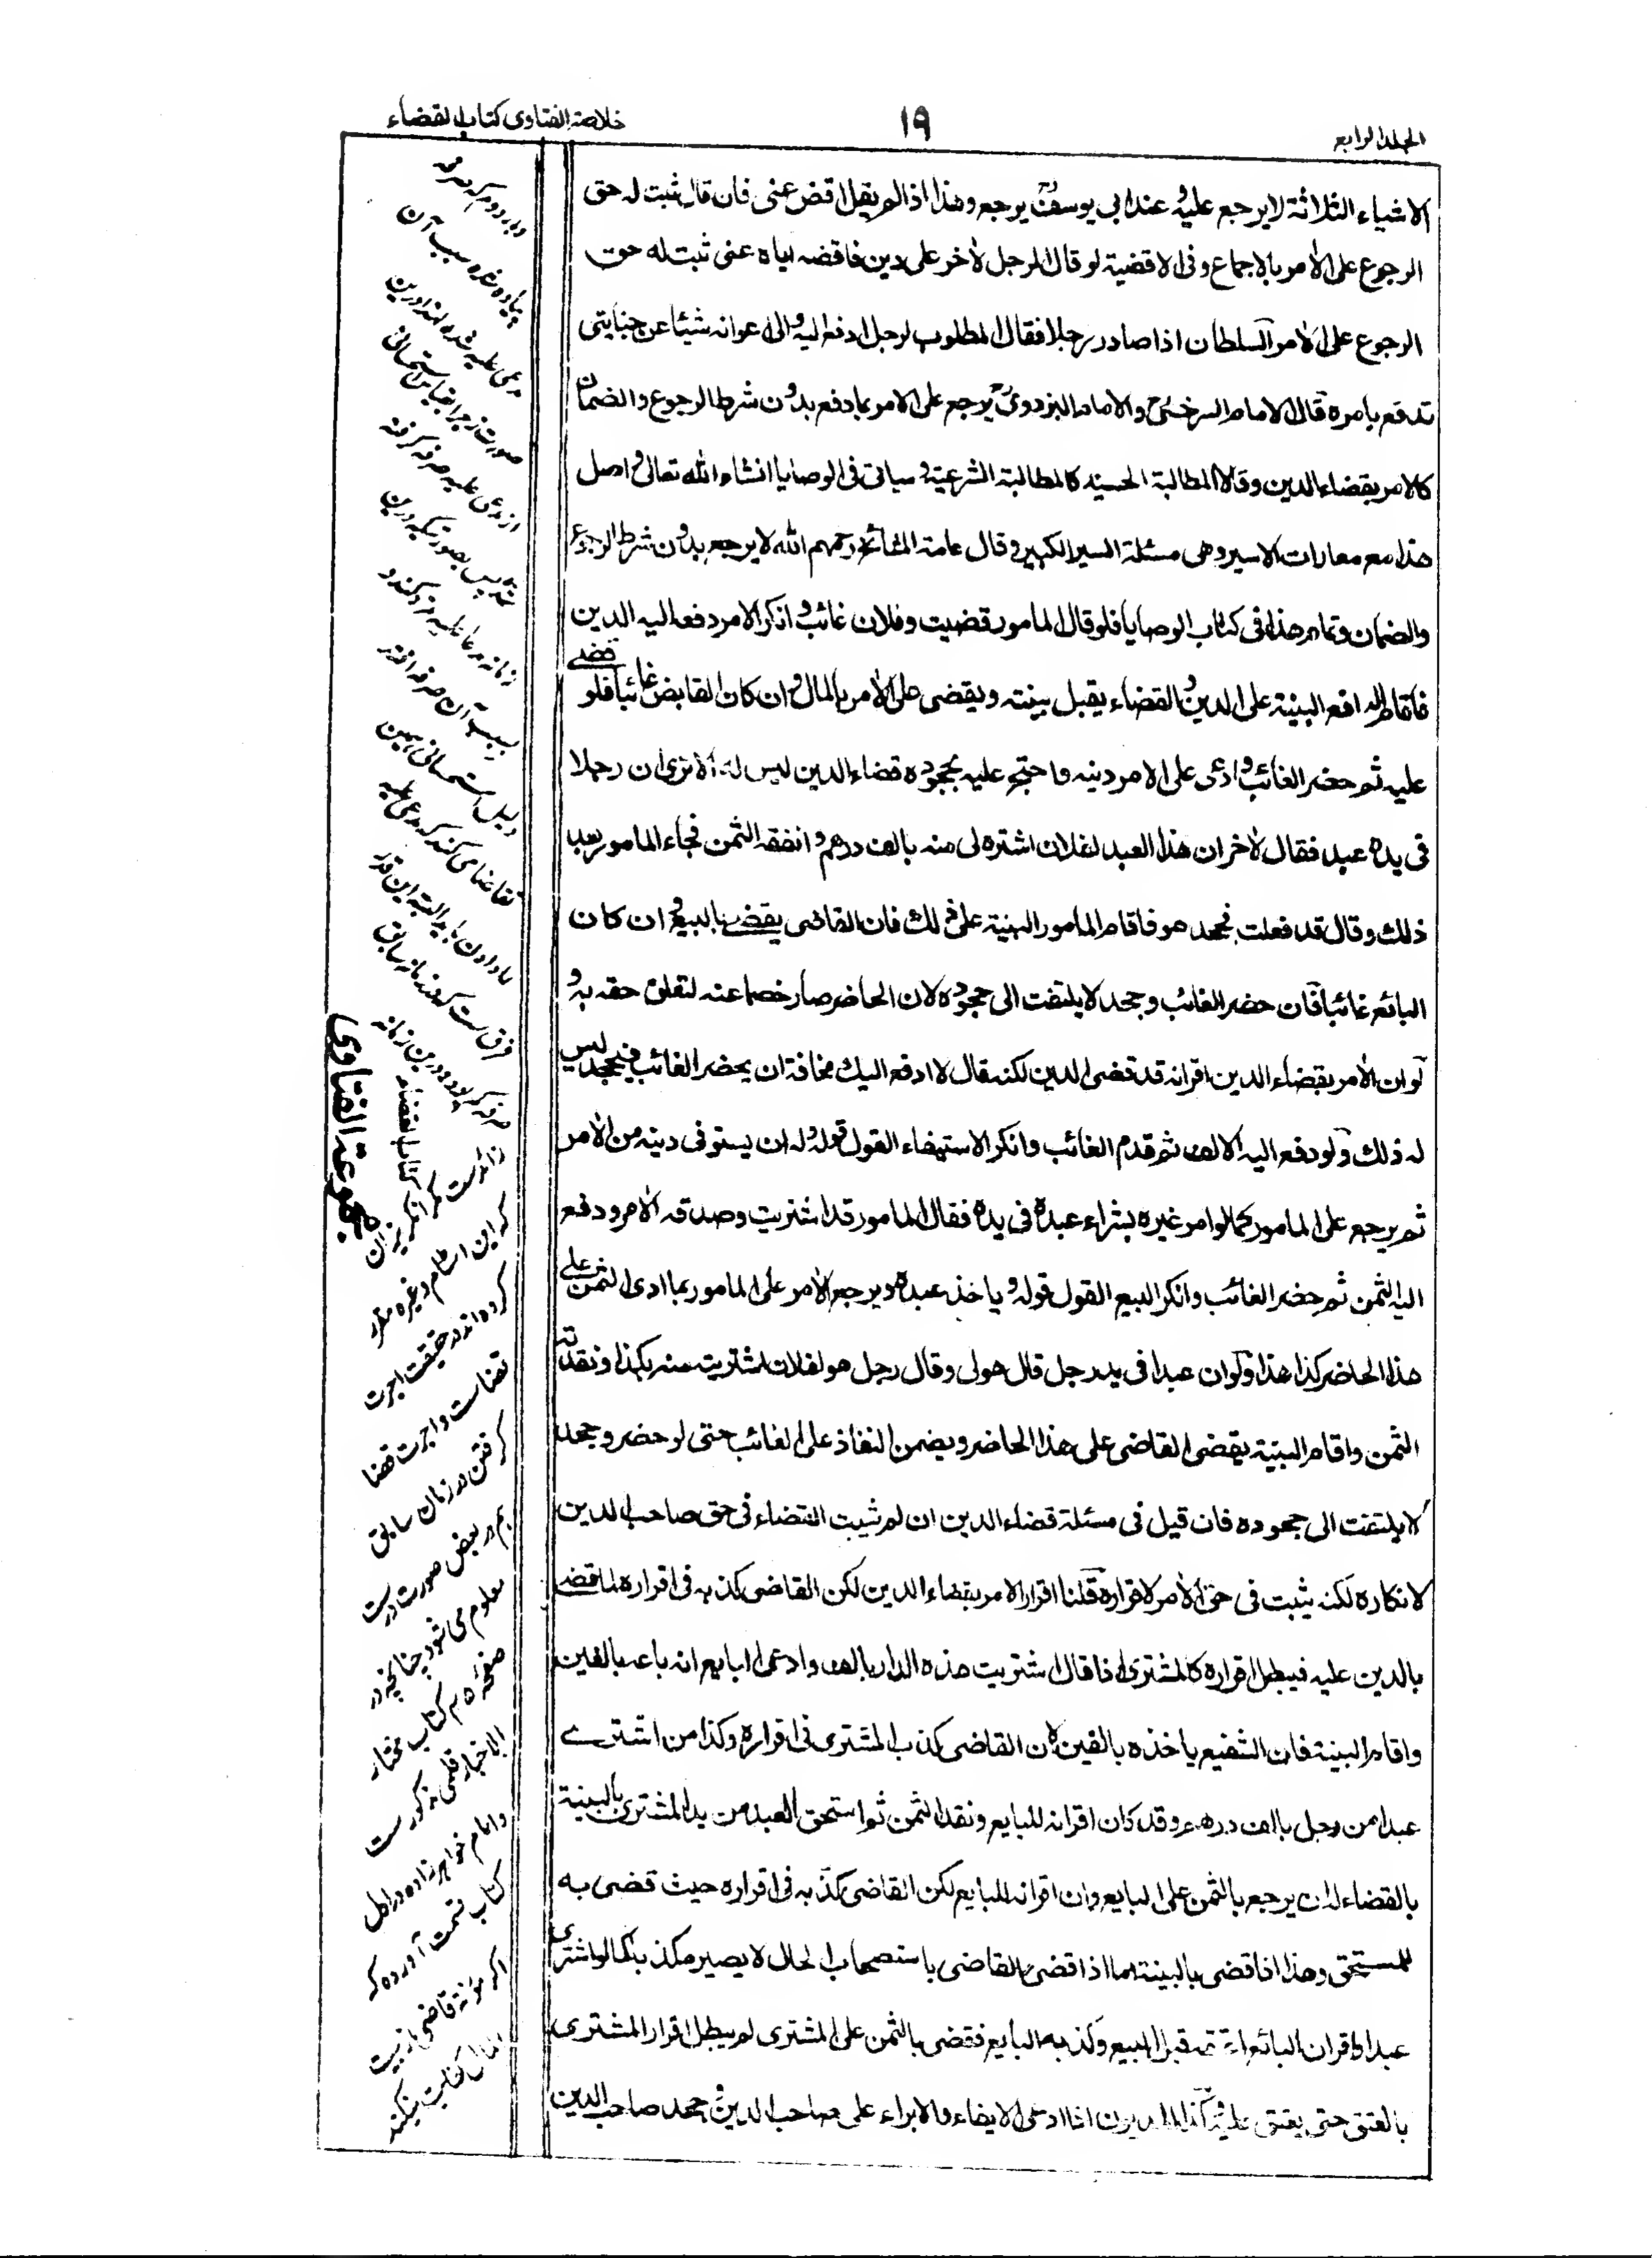 الجلد الرابع
١٩
خلاصة الفتاوى كتاب القضاء
الاشياء الثلاثة لا يرجع عليه و عند ابي يوسفؒ يرجع وهذا اذا لم يقل اقض عنى فان قال ثبت له حق
الرجوع على الآمر بالاجماع وفى الاقضية لو قال الرجل لآخر على دين فاقضه اياه عنى ثبت له حق
الرجوع على الآمر السلطان اذا صادر رجلا فقال المطلوب لرجل ادفع اليه والى اعوانه شيئا عن جنايتى
تدفع بامره قال الامام السرخسىؒ والامام البزدوىؒ يرجع على الامر بما دفع بدون شرط الرجوع والضمان
كالامر بقضاء الدين وقالا المطالبة الحسية كالمطالبة الشرعية و سياتى فى الوصايا انشاء الله تعالى و اصل
هذا مع معارات الاسير وهى مسئلة السير الكبير و قال عامة المشائخ رحمهم الله لا يرجع بدون شرط الرجوع
والضمان وتمام هذا فى كتاب الوصايا فلو قال المامور قضيت وفلان غائب و انكر الامر دفعه اليه الدين
فاقام الدافع البينة على الدين و القضاء يقبل بينته ويقضى على الآمر بالمال و ان كان القابض غائبا فلو قضے
عليه ثم حضر الغائب و ادعى على الامر دينه واحتج عليه بجحوده قضاء الدين ليس له الا ترى ان رجلا
فى يده عبد فقال لآخر ان هذا العبد لفلان اشتره لى منه بالف درهم و انفقه الثمن فجاء المامور بعد
ذلك وقال قد فعلت فجحد هو فاقام المامور البينة على ذلك فان القاضى يقضے بالبيع و ان كان
البائع غائبا فان حضر الغائب وجحد لا يلتفت الى جحوده لان الحاضر صار خصما عنه لتعلق حقه به و
لو ان الآمر بقضاء الدين اقر انه قد قضى الدين لكنه قال لا ادفع اليك مخافة ان يحضر الغائب فيجحد ليس
له ذلك ولو دفع اليه الالف ثم قدم الغائب وانكر الاستيفاء القول قوله و له ان يستوفى دينه من الآمر
ثم يرجع على المامور كما لو امر غيره بشراء عبده فى يده فقال المامور قد اشتريت وصدقه الآمر ودفع
اليه الثمن ثم حضر الغائب وانكر البيع القول قوله و ياخذ عبده ويرجع الآمر على المامور بما ادى الثمن على
هذا الحاضر كذا هذا ولو ان عبدا فى يد رجل قال هو لى وقال رجل هو لفلان اشتريته منه بكذا ونقدته
الثمن واقام البينة يقضى القاضى على هذا الحاضر ويضمن النفاذ على الغائب حتى لو حضر وجحد
لا يلتفت الى جحوده فان قيل فى مسئلة قضاء الدين ان لم يثبت القضاء فى حق صاحب الدين
لانكاره لكنه يثبت فى حق الآمر لاقراره قلنا اقرار الامر بقضاء الدين لكن القاضى كذبه فى اقراره لما قضے
بالدين عليه فيبطل اقراره كالمشترى اذا قال اشتريت هذه الدار بالف وادعى البايع انه باعه بالفين
واقام البينة فان الشفيع ياخذه بالفين لان القاضى كذب المشترى فى اقراره وكذا من اشترے
عبدا من رجل بالف درهم وقد كان اقر انه للبايع ونقد الثمن ثم استحق العبد من يد المشترى بالبينة
بالقضاء له ان يرجع بالثمن على البايع وان اقر انه للبايع لكن القاضى كذبه فى اقراره حيث قضى به
للمستحق وهذا اذا قضى بالبينة اما اذا قضى القاضى باستصحاب الحال لا يصير مكذبا كما لو اشترى
عبدا واقر ان البائع اعتقه قبل البيع وكذبه البايع فقضى بالثمن على المشترى لم يبطل اقرار المشترى
بالعتق حتى يعتق عليه و كذا المديون اذا ادعى الايفاء والابراء على صاحب الدين و جحد صاحب الدين
مجموعة الفتاوى
كتاب القضاء
پياده شده سبب آن
صورت از جواب قياس استحسانى
از مدعى عليه صرفه گرفته
سبب آن صرفه افتد
دليل استحسانى همين
تقاضاى كند كه مدعى عليه
دادن بايد البته اين قدر
فرق است كه در زمانه سابق
زائد است مگر انگريزان
كه اين اسٹام وغيره مقرر
كرده اند در حقيقت اجرت
قضاست و اجرت قضا
گرفتن در زمان سابق
هم در بعض صورت درست
معلوم مى شود چنانچه در
صفحه ۵م كتاب مختار
الاخبار قلمى مذكورست
و امام خواهر زاده در اول
كتاب قسمت آورده كه
اگر مؤنة قاضى از بيت
المال كفايت نيكند